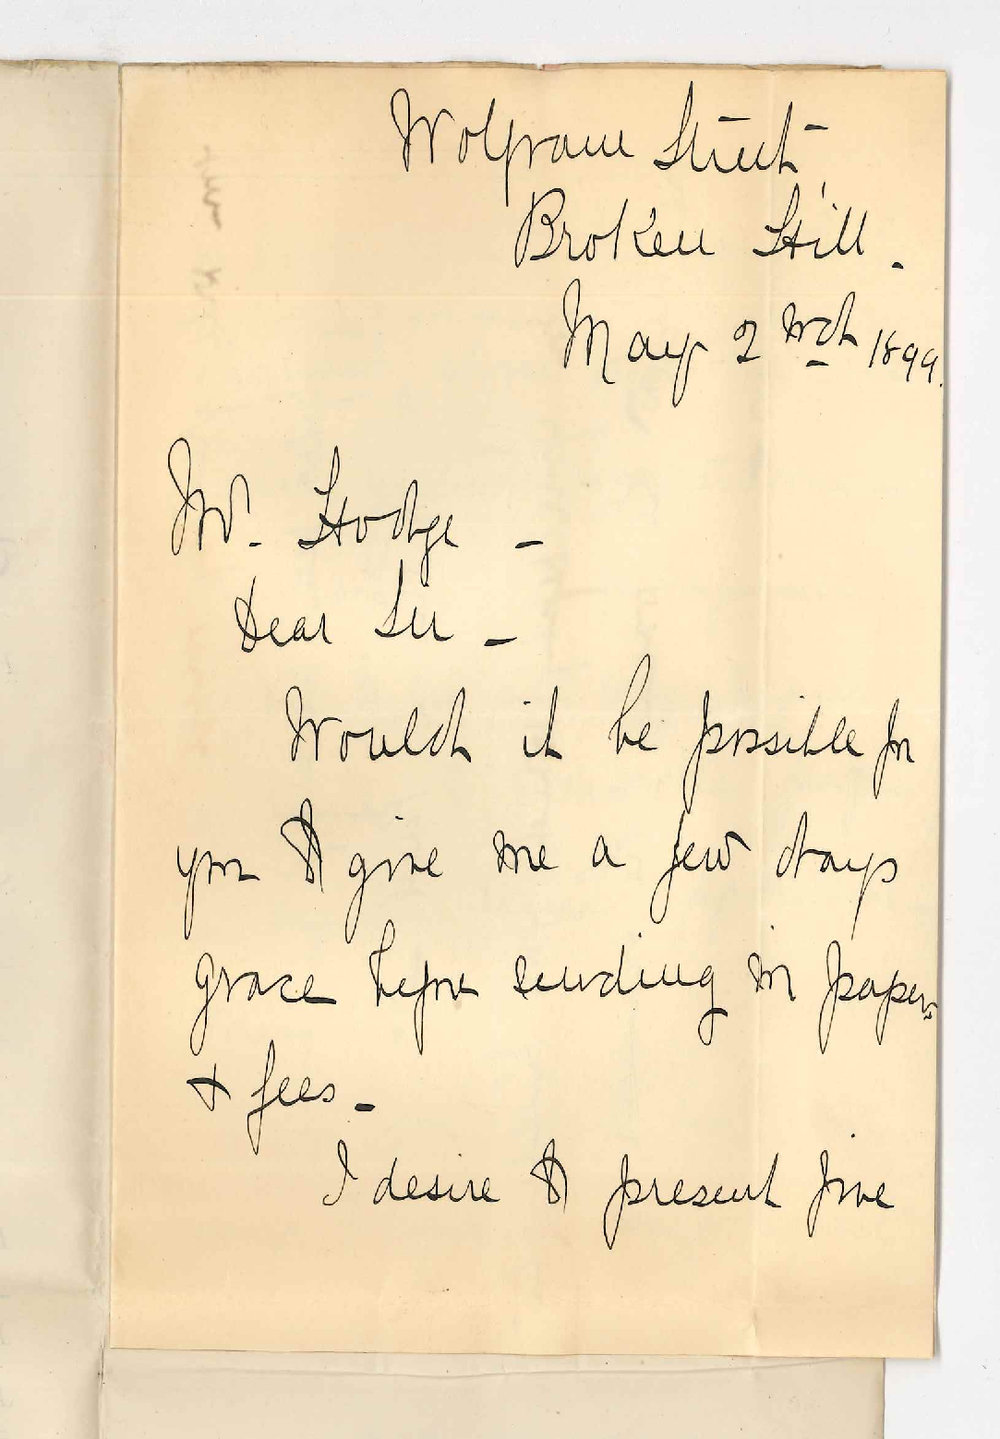 Wolfram Street
Broken Hill.
May 2nd 1899.
Mr. Hodge -
Dear Sir -
Would it be possible for
you to give me a few days
grace before sending in papers
& fees -
I desire to present five